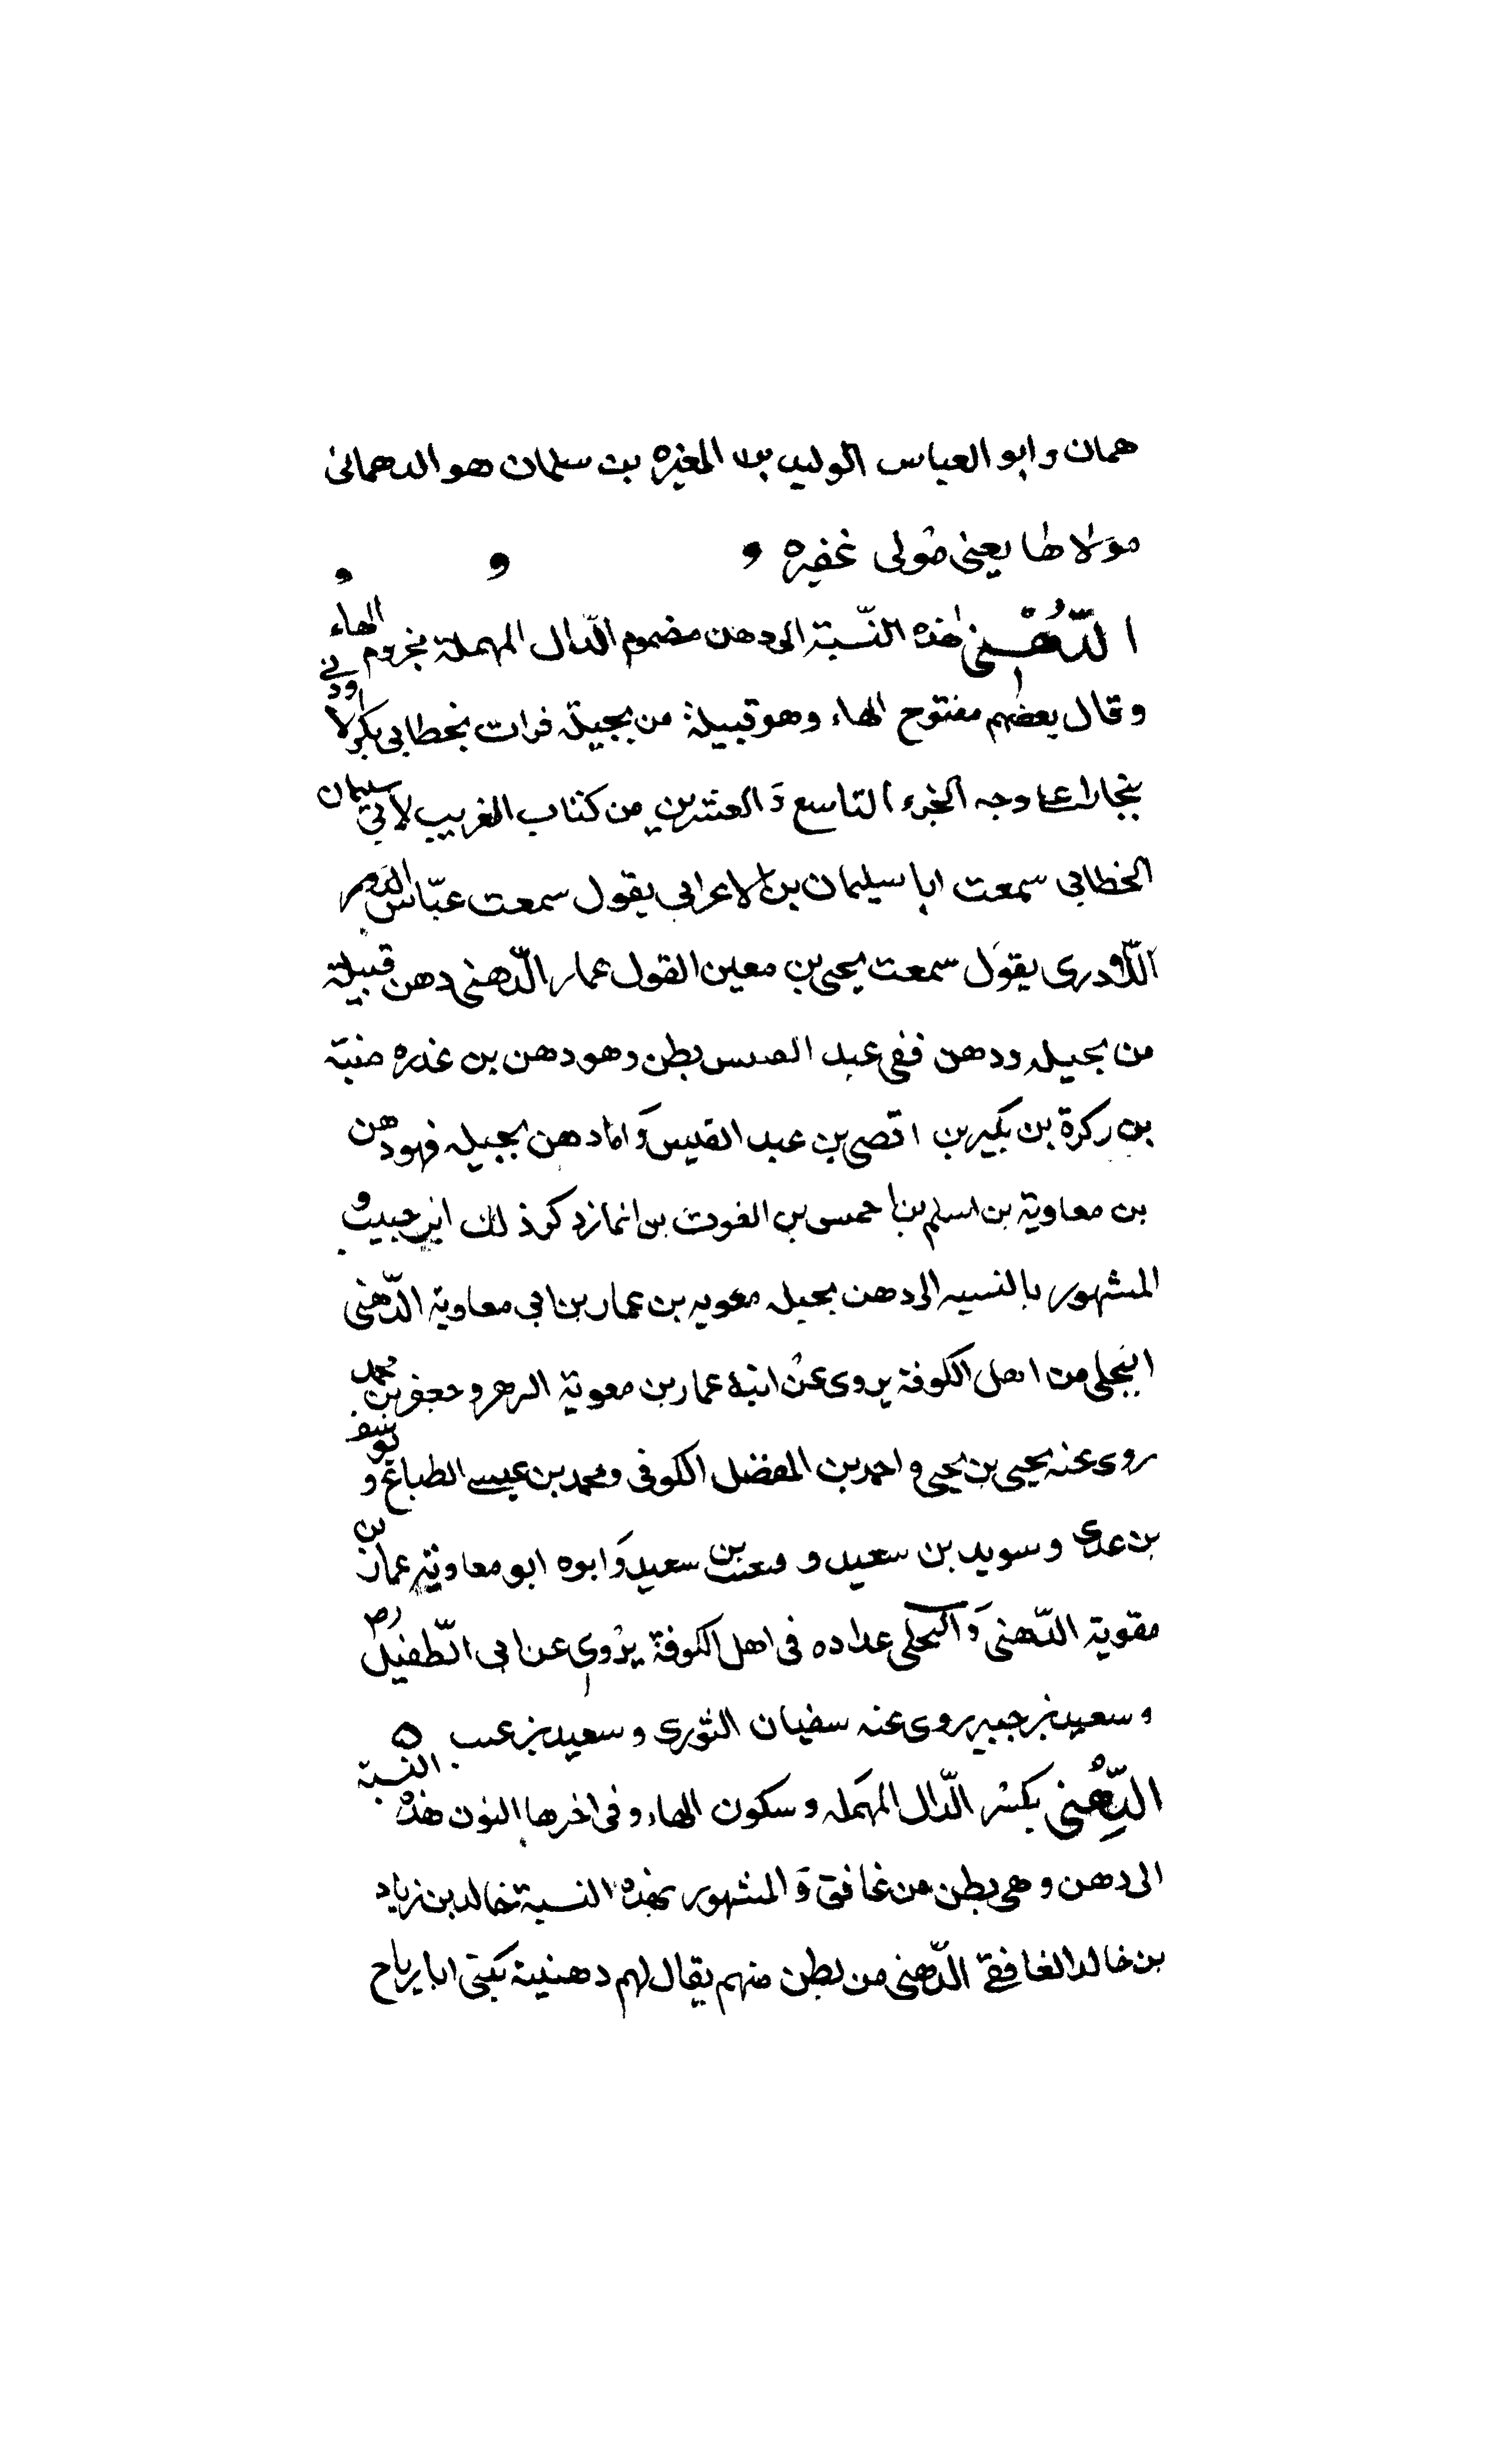 همان وابو العباس الوليد بن المغيره بن سلمان هو الدهمانى
مولاها يعنى مولى غفيره
الدُّهْنى هذه النّسبة الى دهن مضموم الدّال المهملة مجزوم الهاء
وقال بعضهم مفتوح الهاء وهو قبيلة من بجيلة قرات بخط ابى بكر الاودنى
ببخارا على وجه الجزء التاسع وَالعشرين من كتاب الغريب لابى سليمان
الخطابى سمعت ابا سليمان بن الاعرابى يقول سمعت عبّاس
الدّودرى يقول سمعت يحيى بن معين القول عمار الدّهنى دهن قبيلة
من بجيله ودهن ففى عبد القيس بطن وهو دهن بن عذره منبة
بن ركرة بن بكير بن اقصى بن عبد القيس وَاما دهن بجيله فهو دهن
بن معاوية بن اسلم بن احمس بن الغوث بن انمار ذكر ذلك ابن حبيب و
المشهور بالنسبه الى دهن بجيله معويه بن عمار بن ابى معاوية الدّهنى
البجلى من اهل الكوفة يروى عن ابيه عمار بن معوية الزهر وجعفر بن محمد
روى عنه يحيى بن يحيى واحمد بن المفضل الكوفى ومحمد بن عيسى الطباع ويوسف
بن عدى وسويد بن سعيد و معبد بن سعيد وَابوه ابو معاوية عمار بن
مقوية الدّهنى وَالبجلى عداده فى اهل الكوفة يروى عن ابى الطّفيل
وسعيد بن جبير روى عنه سفيان الثورى وسعيد بن
الدِّهْنى بكسر الدّال المهمله وسكون الهاء وفى اخرها النون هذه النسبة
الى دهن وهى بطن من غافق وَالمشهور بهذه النسبة خالد بن زياد
بن خالد الغافقى الدّهنى من بطن منهم يقال لهم دهنية يكنى ابا رياح